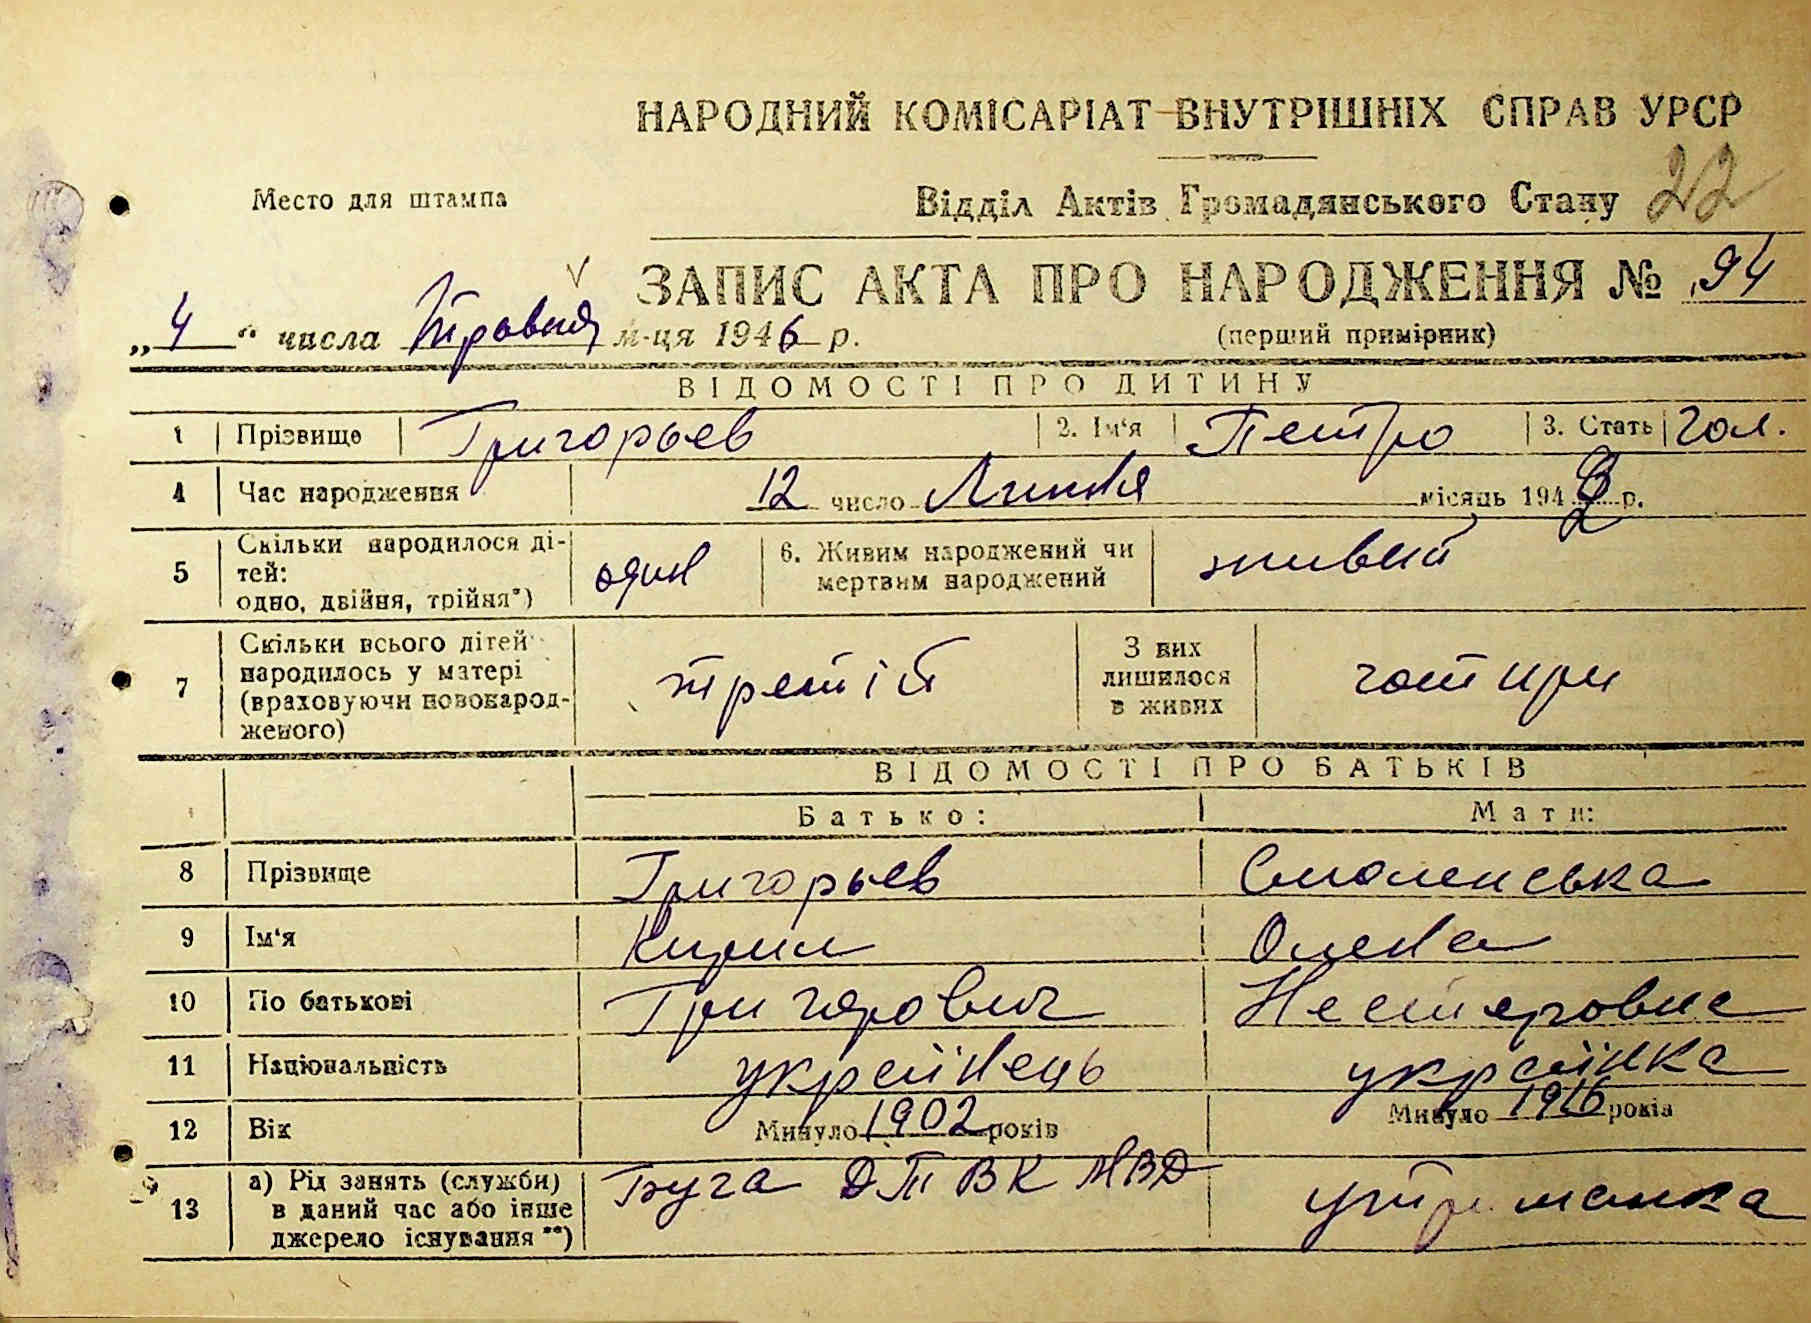 НАРОДНИЙ КОМІСАРІАТ ВНУТРІШНІХ СПРАВ УРСР
Место для штампа
Відділ Актів Громадянського Стану 22
ЗАПИС АКТА ПРО НАРОДЖЕННЯ № 94
„4“ числа Травня м-ця 1946 р.
(перший примірник)
ВІДОМОСТІ ПРО ДИТИНУ
1 Прізвище Григорьев 2. Ім‘я Петро 3. Стать чол.
4 Час народження 12 число Липня місяць 194 р.
5 Скільки народилося ді-
тей:
одно, двійня, трійня*)
один
6. Живим народжений чи
мертвим народжений
живий
7 Скільки всього дітей
народилось у матері
(враховуючи новонарод-
женого)
третій
З них
лишилося
в живих
чотири
ВІДОМОСТІ ПРО БАТЬКІВ
Батько: Мати:
8 Прізвище Григорьев Смоленська
9 Ім‘я Кирил Олена
10 По батькові Григорович Нестеровна
11 Національність українець українка
12 Вік Минуло 1902 років Минуло 1916 років
13 а) Рід занять (служби)
в даний час або інше
джерело існування **)
ДТВК МВД утриманка